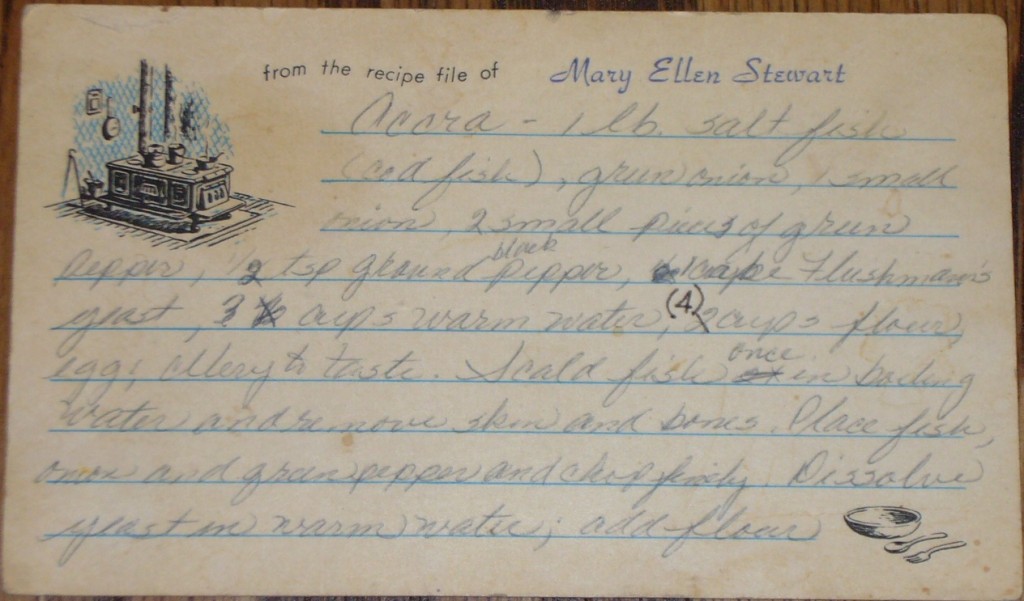 from the recipe file of Mary Ellen Stewart
Accra - 1 lb. salt fish
(cod fish), green onion, 1 small
onion, 2 small pieces of green
black
pepper, 1/2 tsp ground pepper, 1 cake Flushmann's
yeast, 3 cups warm water, (4) 2 cups flour,
once
egg, celery to taste. Scald fish in boiling
water and remove skin and bones. Place fish,
onion and green pepper and chop finely. Dissolve
yeast in warm water; add flour